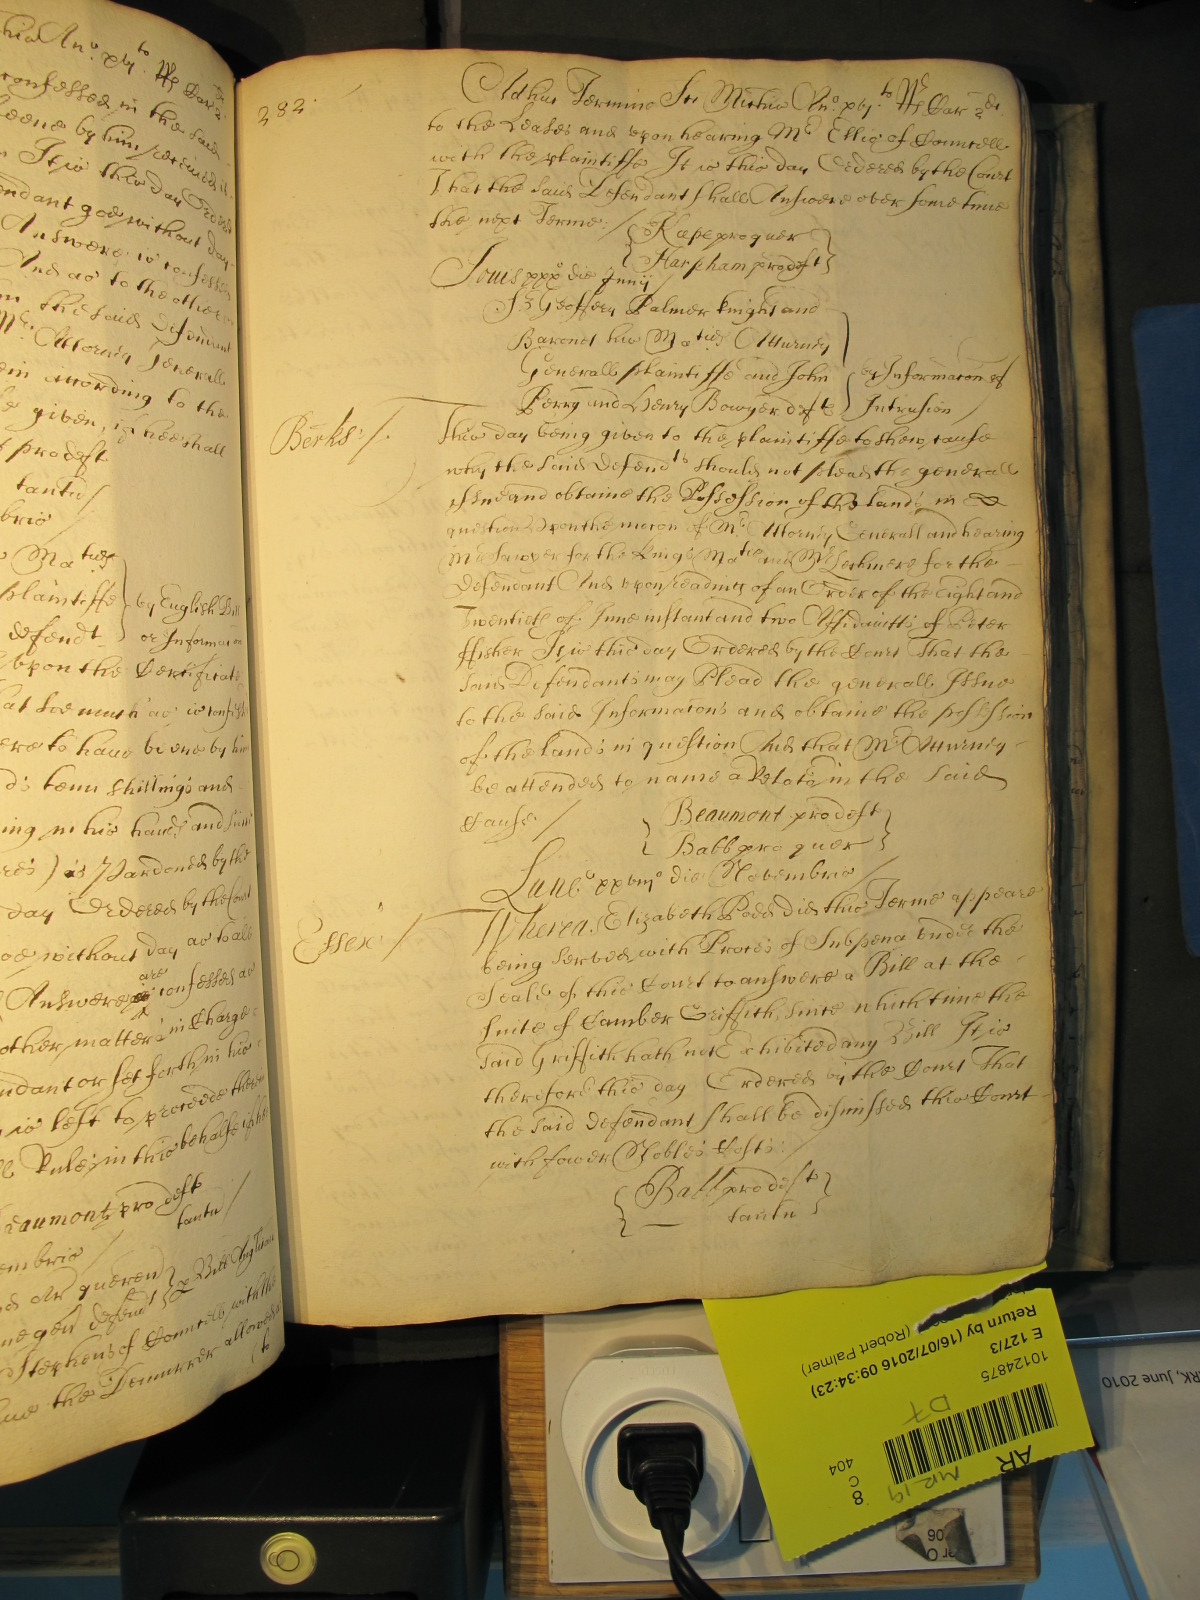 hio An.o xvj.to R Car
confessed in the said
beene by him received
It is this day Ordered
endant goe without day
Answere is confessed
And as to the other
in the said Defendant
Mr. Attorney Generall
in according to the
given, if hee shall
pro deft
tantu /
brio
Ma ties
plaintiffe by English Bill
defendt. or Informacon
upon the Certificate
at soe much as is confest
ere to have beene by him
d's tenn shillings and
ing in his hands and
res ) is Pardoned by the
day Ordered by the Court
oe without day as to all
are
Answere is confessed as
other matters in Charge
ndant or set forth in his
is left to proceede there
Rules in this behalfe
eaumont pro deft
tantu /
embrio
quer
defend p Bill Anglican
Stephens of Councell with the
the Demurrer allowed
to
282.
Adhuc Termino Ste Michis An.o xvj.to R Car 2di.
to the Leases and upon hearing Mr. Ellis of Councell
with the plaintiffe It is this day Ordered by the Court
That the said Defendant shall Answere over some time
the next Terme. / Rape pro quer
Harpham pro deft
Jovis xxxo die Junij
Sr. Geoffery Palmer Knight and
Baronet his Ma ties Atturney
Generall plaintiffe and John ex Informacon of
Perry and Henry Bowyer deft Intrusion /
Berks: /.
This day being given to the plaintiffe to shew cause
why the said Defend ts should not plead the generall
Issue and obtaine the Possession of the land's in
question Upon the mocon of Mr. Attorney Generall and hearing
Mr Sawyer for the Kings Ma tie and Mr for the
Defendant And upon reading of an Order of the Eight and
Twentieth of June instant and two Affidavitts of Peter
ffisher It is this day Ordered by the Court That the
said Defendants may Plead the generall Issue
to the said Informacons and obtaine the possession
of the land's in question And that Mr. Atturney
be attended to name a Relator in the said
Cause / Beaumont pro deft
Babb pro quer
Lune xxviijo die Novembris /
Essex /
Whereas Elizabeth Podd did this Terme appeare
being served with Proces of Subpena under the
Seale of this Court to answere a Bill at the
suite of Camber Griffith, since which time the
said Griffith hath not Exhibited any Bill It is
therefore this day Ordered by the Court That
the said defendant shall be dismissed this Court
with fower Nobles Costs: /
Ball pro deft
tantu
Return by (16/07/2016 09:34:23)
(Robert Palmer)
E 127/3
10124875
D7
404
C
8
MR 19
AR
RK, June 2010
06